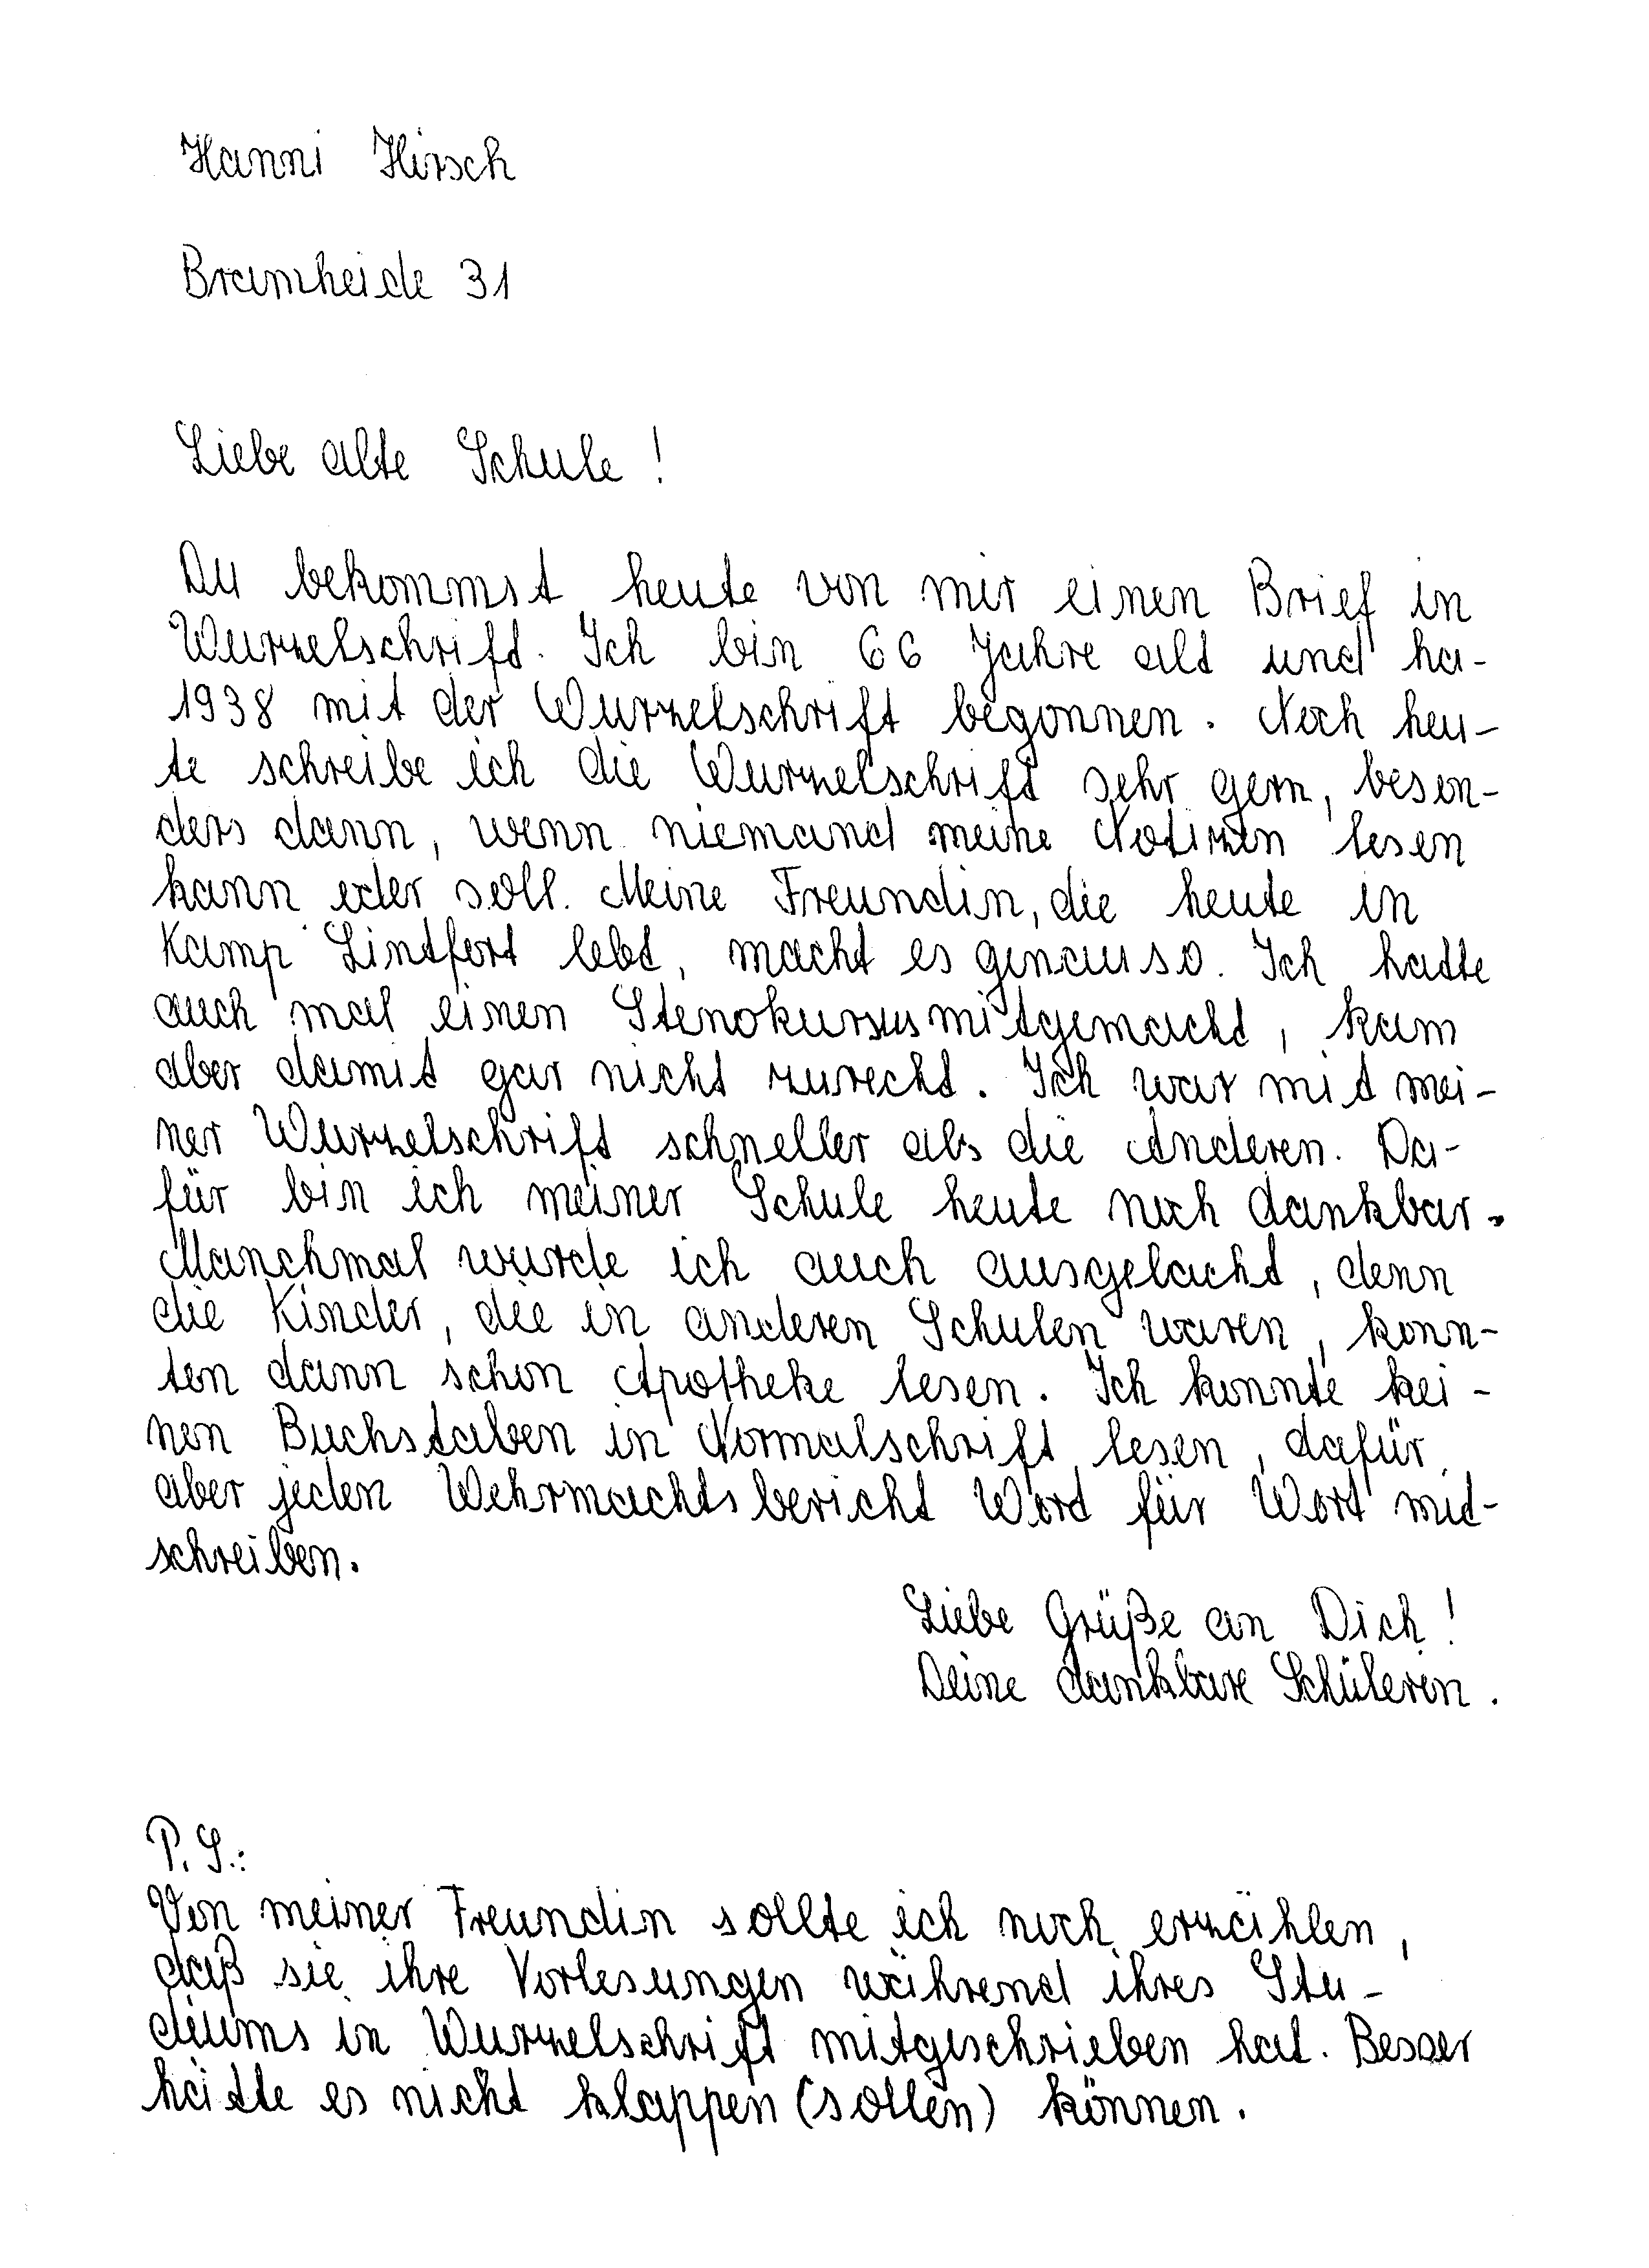 Hanni Hirsch
Bramheide 31
Liebe alte Schule!
Du bekommst heute von mir einen Brief in
Wurzelschrift. Ich bin 66 Jahre alt und ha-
1938 mit der Wurzelschrift begonnen. Noch heu-
te schreibe ich die Wurzelschrift sehr gern, beson-
ders dann, wenn niemand meine Notizen lesen
kann oder soll. Meine Freundin, die heute in
Kamp Lintfort lebt, macht es genauso. Ich hatte
auch mal einen Stenokursus mitgemacht, kam
aber damit gar nicht zurecht. Ich war mit mei-
ner Wurzelschrift schneller als die Anderen. Da-
für bin ich meiner Schule heute noch dankbar.
Manchmal wurde ich auch ausgelacht, denn
die Kinder, die in anderen Schulen waren, konn-
ten dann schon Apotheke lesen. Ich konnte kei-
nen Buchstaben in Normalschrift lesen, dafür
aber jeden Wehrmachtsbericht Wort für Wort mit-
schreiben.
Liebe Grüße an Dich!
Deine dankbare Schülerin.
P.S.:
Von meiner Freundin sollte ich noch erzählen,
daß sie ihre Vorlesungen während ihres Stu-
diums in Wurzelschrift mitgeschrieben hat. Besser
hätte es nicht klappen (sollen) können.